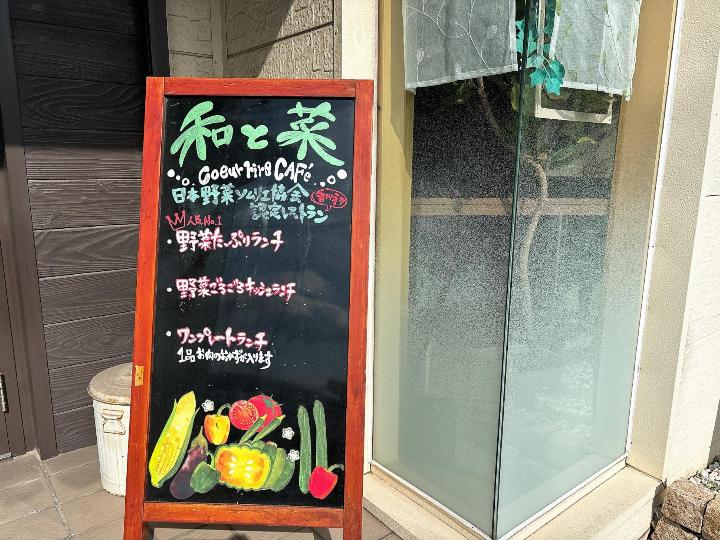 和と菜
Coeur Tire CAFé
日本野菜ソムリエ協会
認定レストラン
人気No.1
・野菜たっぷりランチ
・野菜ごろごろキッシュランチ
・ワンプレートランチ
1品お肉のおかずが入ります